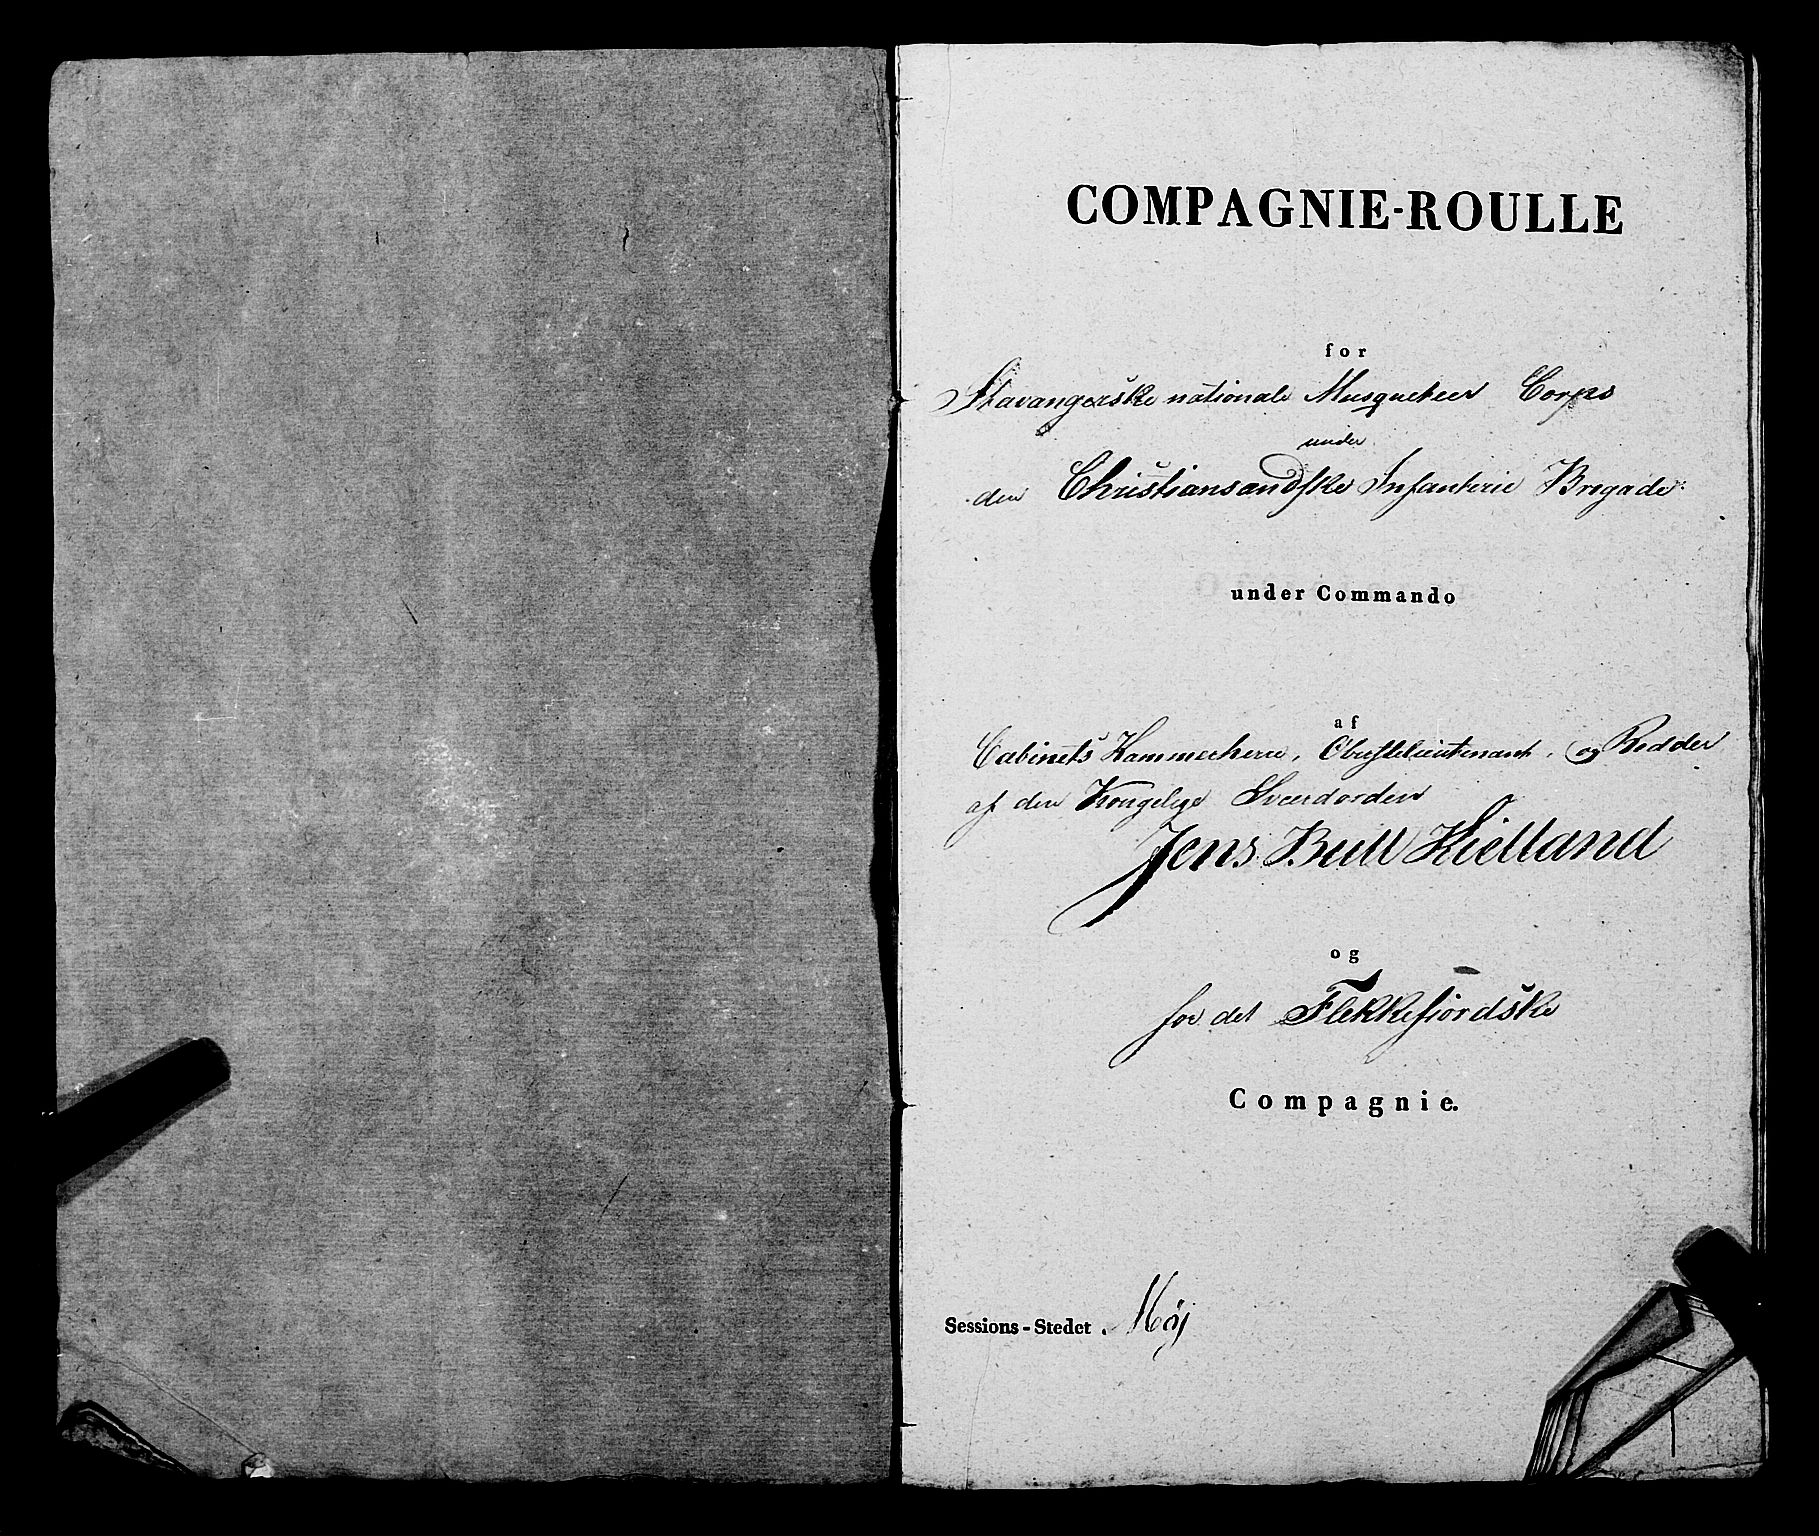 COMPAGNIE-ROULLE
for
Stavangerske nationale Musqueteer Corps
under
den Christiansandske Infanterie Brigade
under Commando
af
Cabinets Kammerherre, Oberstelieutenant, og Redder
af den Kongelige Sverdorden
Jens Bull Kielland
og
for det Flekkefiordske
Compagnie.
Sessions-Stedet. Møj